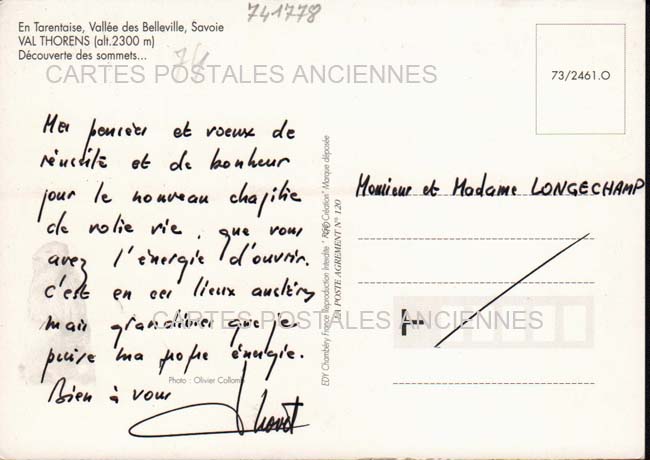 741778
En Tarentaise, Vallée des Belleville, Savoie
VAL THORENS (alt.2300 m)
Découverte des sommets...
74
CARTES POSTALES ANCIENNES
73/2461.O
Mes pensées et voeux de
réussite et de bonheur
pour le nouveau chapitre
de votre vie, que vous
avez l'énergie d'ouvrir.
c'est en ces lieux austères
mais grandioses que je
puise ma propre énergie.
Bien à vous
Photo : Olivier Collomb
EDY Chambéry France Reproduction Interdite "Création" Marque déposée
LA POSTE AGREMENT N° 120
Monsieur et Madame LONGECHAMP
CARTES POSTALES ANCIENNES